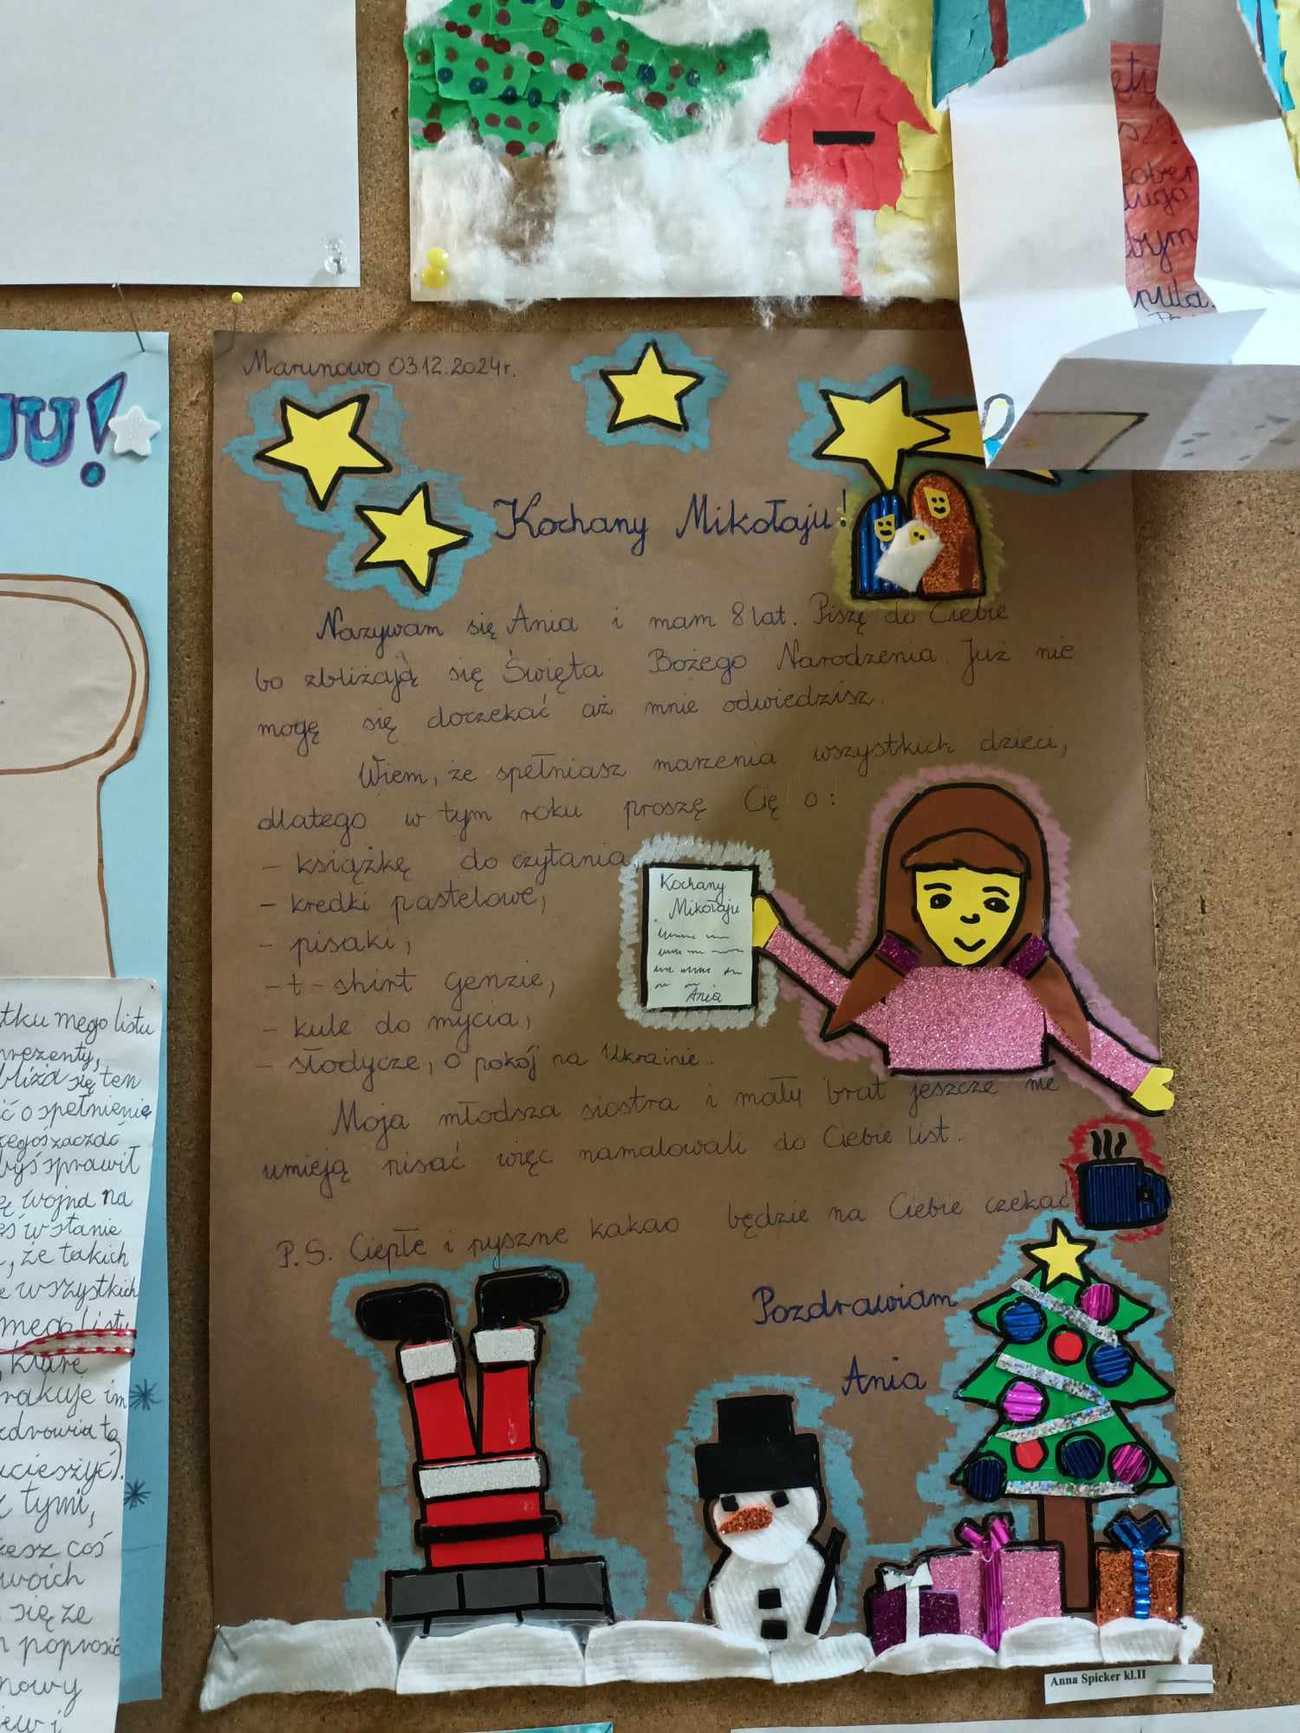 Marunowo 03.12.2024r.
Kochany Mikołaju!
Nazywam się Ania i mam 8 lat. Piszę do Ciebie
bo zbliżają się Święta Bożego Narodzenia. Już nie
mogę się doczekać aż mnie odwiedzisz.
Wiem, że spełniasz marzenia wszystkich dzieci,
dlatego w tym roku proszę Cię o:
- książkę do czytania
- kredki pastelowe,
- pisaki,
- t-shirt Genzie,
- kule do mycia,
- słodycze, o pokój na Ukrainie.
Moja młodsza siostra i mały brat jeszcze nie
umieją pisać więc namalowali do Ciebie list.
P.S. Ciepłe i pyszne kakao będzie na Ciebie czekać
Pozdrawiam
Ania
Kochany
Mikołaju
Ania
Anna Spicker kl.II
JU!
tku mego listu
prezenty,
bliża się ten
ić o spełnienie
czegoś zacząć
byś sprawił
ę wojna na
eś w stanie
, że takich
e wszystkich
mego listu
, które
rakuje im
zdrowia ta
ucieszyć).
z tymi,
zesz coś
woich
się że
n poprosić
nowy
iew i
ety
sz?
ługo
brym
miła.